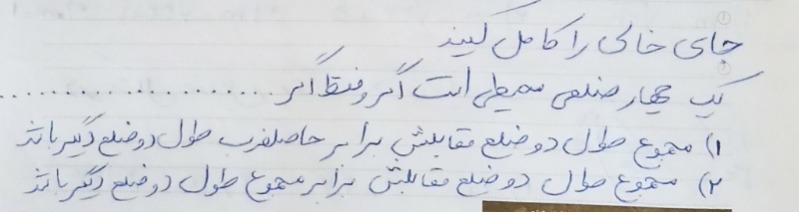 جای خالی را کامل کنید
یک چهار ضلعی محیطی است اگر و فقط اگر ....................
۱) مجموع طول دو ضلع مقابلش برابر حاصلضرب طول دو ضلع دیگر باشد
۲) مجموع طول دو ضلع مقابلش برابر مجموع طول دو ضلع دیگر باشد